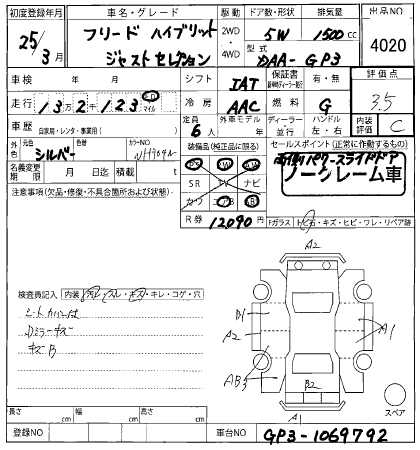 初度登録年月 車名・グレード 駆動 ドア数・形状 排気量 出品NO
25/3月 フリード ハイブリット ジャストセレクション 2WD・4WD 5W 1500cc 4020
型式 DAA-GP3
車検 年 月 シフト IAT 保証書 有・無 評価点
走行 13万2千123 km マイル 冷房 AAC 燃料 G 3.5
車歴 自家用・レンタ・事業用( ) 定員 6人 外車モデル 年 ディーラー 並行 ハンドル 左・右 内装評価 C
外色 元色 シルバー 色替 カラーNO NH704M
装備品(純正品に限る) セールスポイント(正常に作動するもの)
両側パワースライドドア
ノークレーム車
名義変更期限 月 日迄 積載 t
PS PW SR TV ナビ カワ AB
注意事項(欠品・修復・不具合箇所および状態)
R券 12090円
Fガラス トビ石・キズ・ヒビ・ワレ・リペア跡
A2
検査員記入 内装 汚レ・スレ・キズ・キレ・コゲ・穴
シートカバー付
Dミラーキズ
キズB
B1
A2
A1
AB3
B2
A1
スペア
長さ cm 幅 cm 高さ cm
登録NO 車台NO GP3-1069792